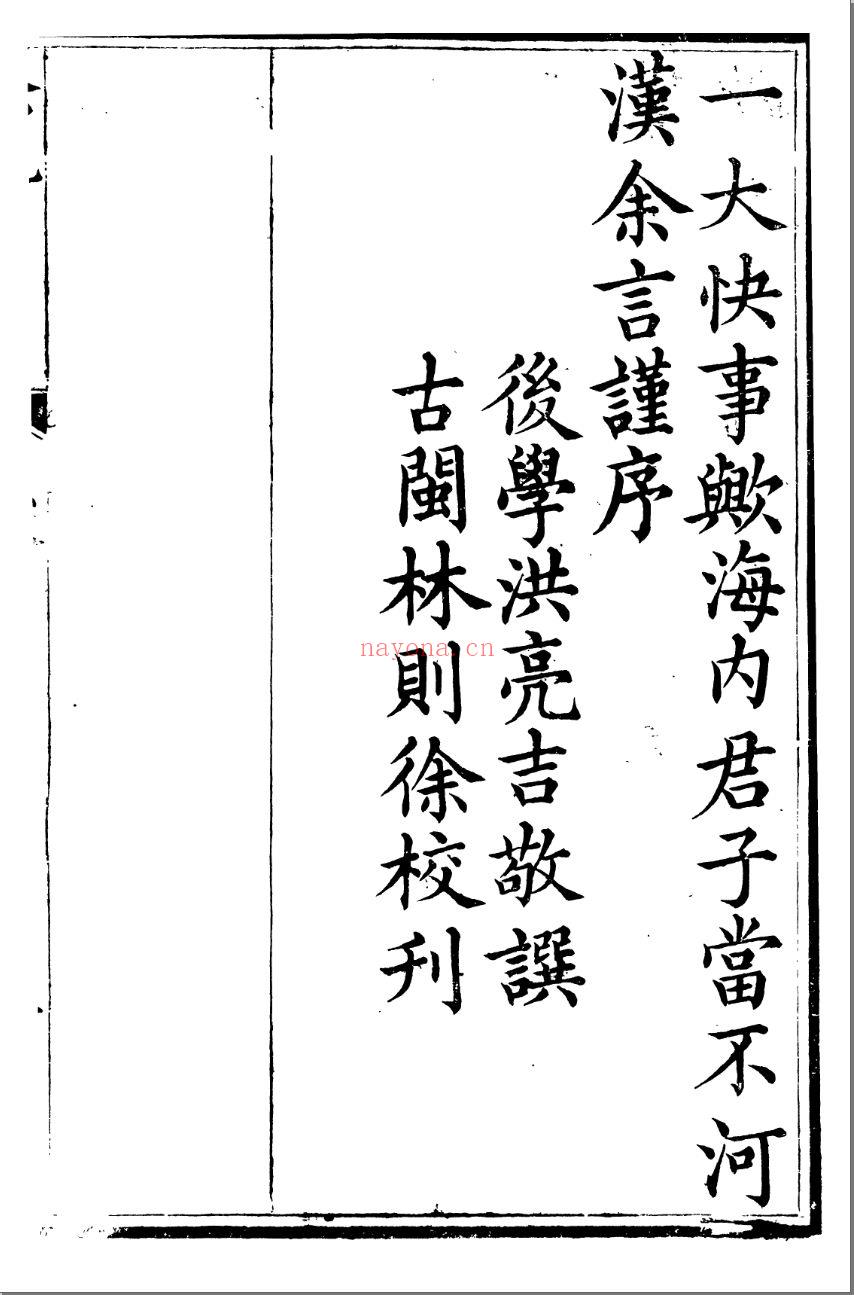 一大快事歟海内君子當不河
漢余言謹序
後學洪亮吉敬譔
古閩林則徐校刋
nayona.cn